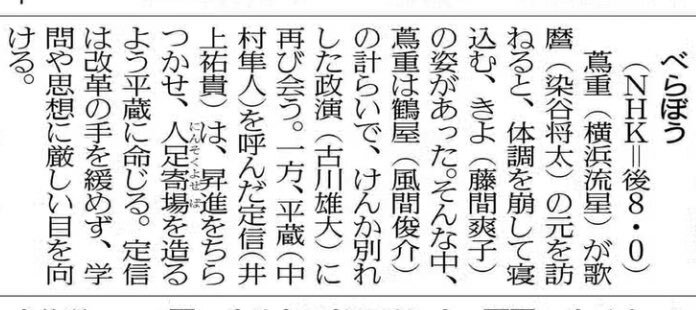 べらぼう
（NHK＝後8・0）
蔦重（横浜流星）が歌
麿（染谷将太）の元を訪
ねると、体調を崩して寝
込む、きよ（藤間爽子）
の姿があった。そんな中、
蔦重は鶴屋（風間俊介）
の計らいで、けんか別れ
した政演（古川雄大）に
再び会う。一方、平蔵（中
村隼人）を呼んだ定信（井
上祐貴）は、昇進をちら
つかせ、人足寄場を造る
にんそくよせば
よう平蔵に命じる。定信
は改革の手を緩めず、学
問や思想に厳しい目を向
ける。